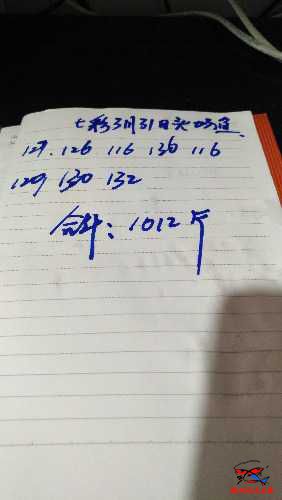 七彩3月31日头场鱼.
127. 126 116 136 116
129 130 132
合计: 1012斤